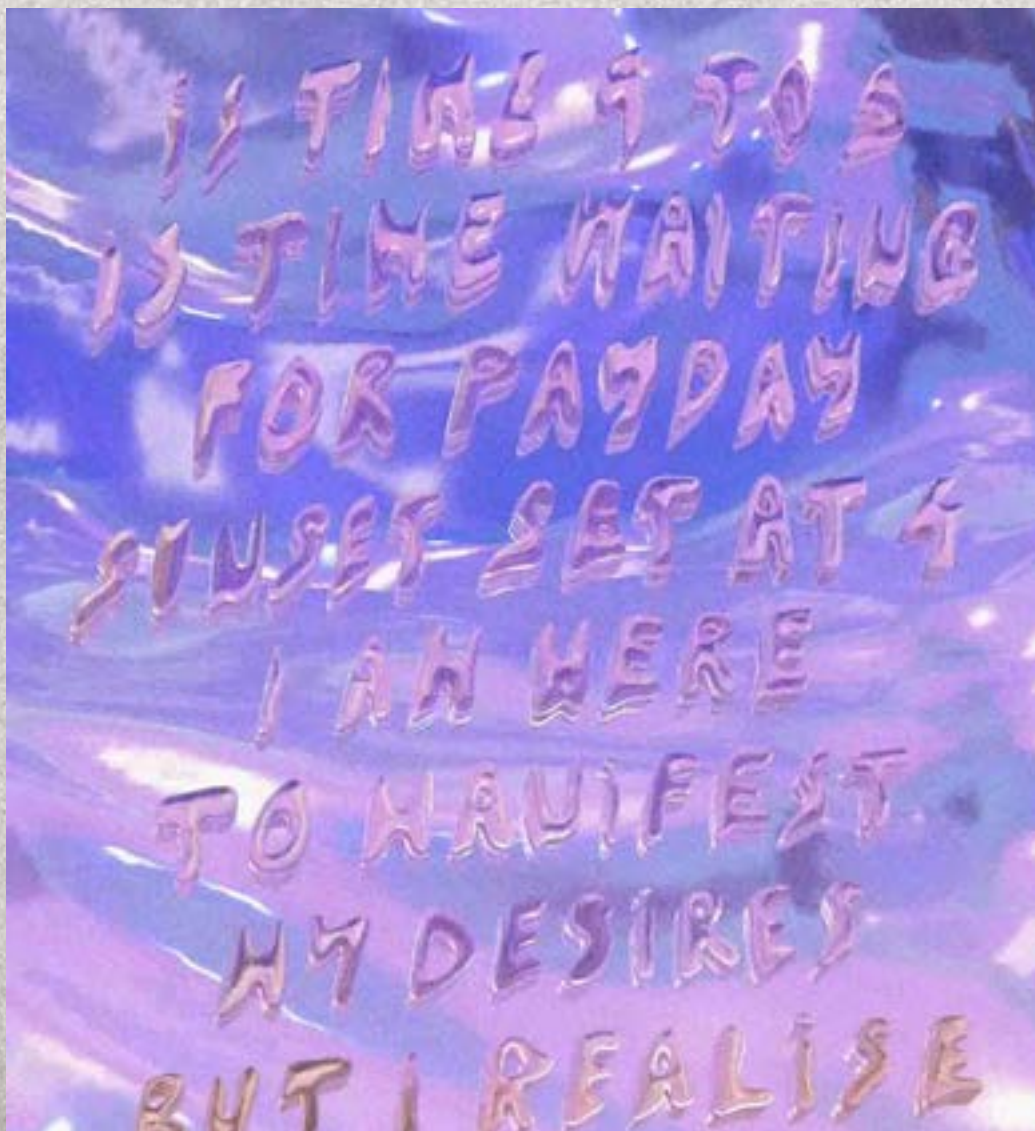 IS TIME 9 TO 5
IS TIME WAITING
FOR PAYDAY
SUNSET SET AT 4
I AM HERE
TO MANIFEST
MY DESIRES
BUT I REALISE